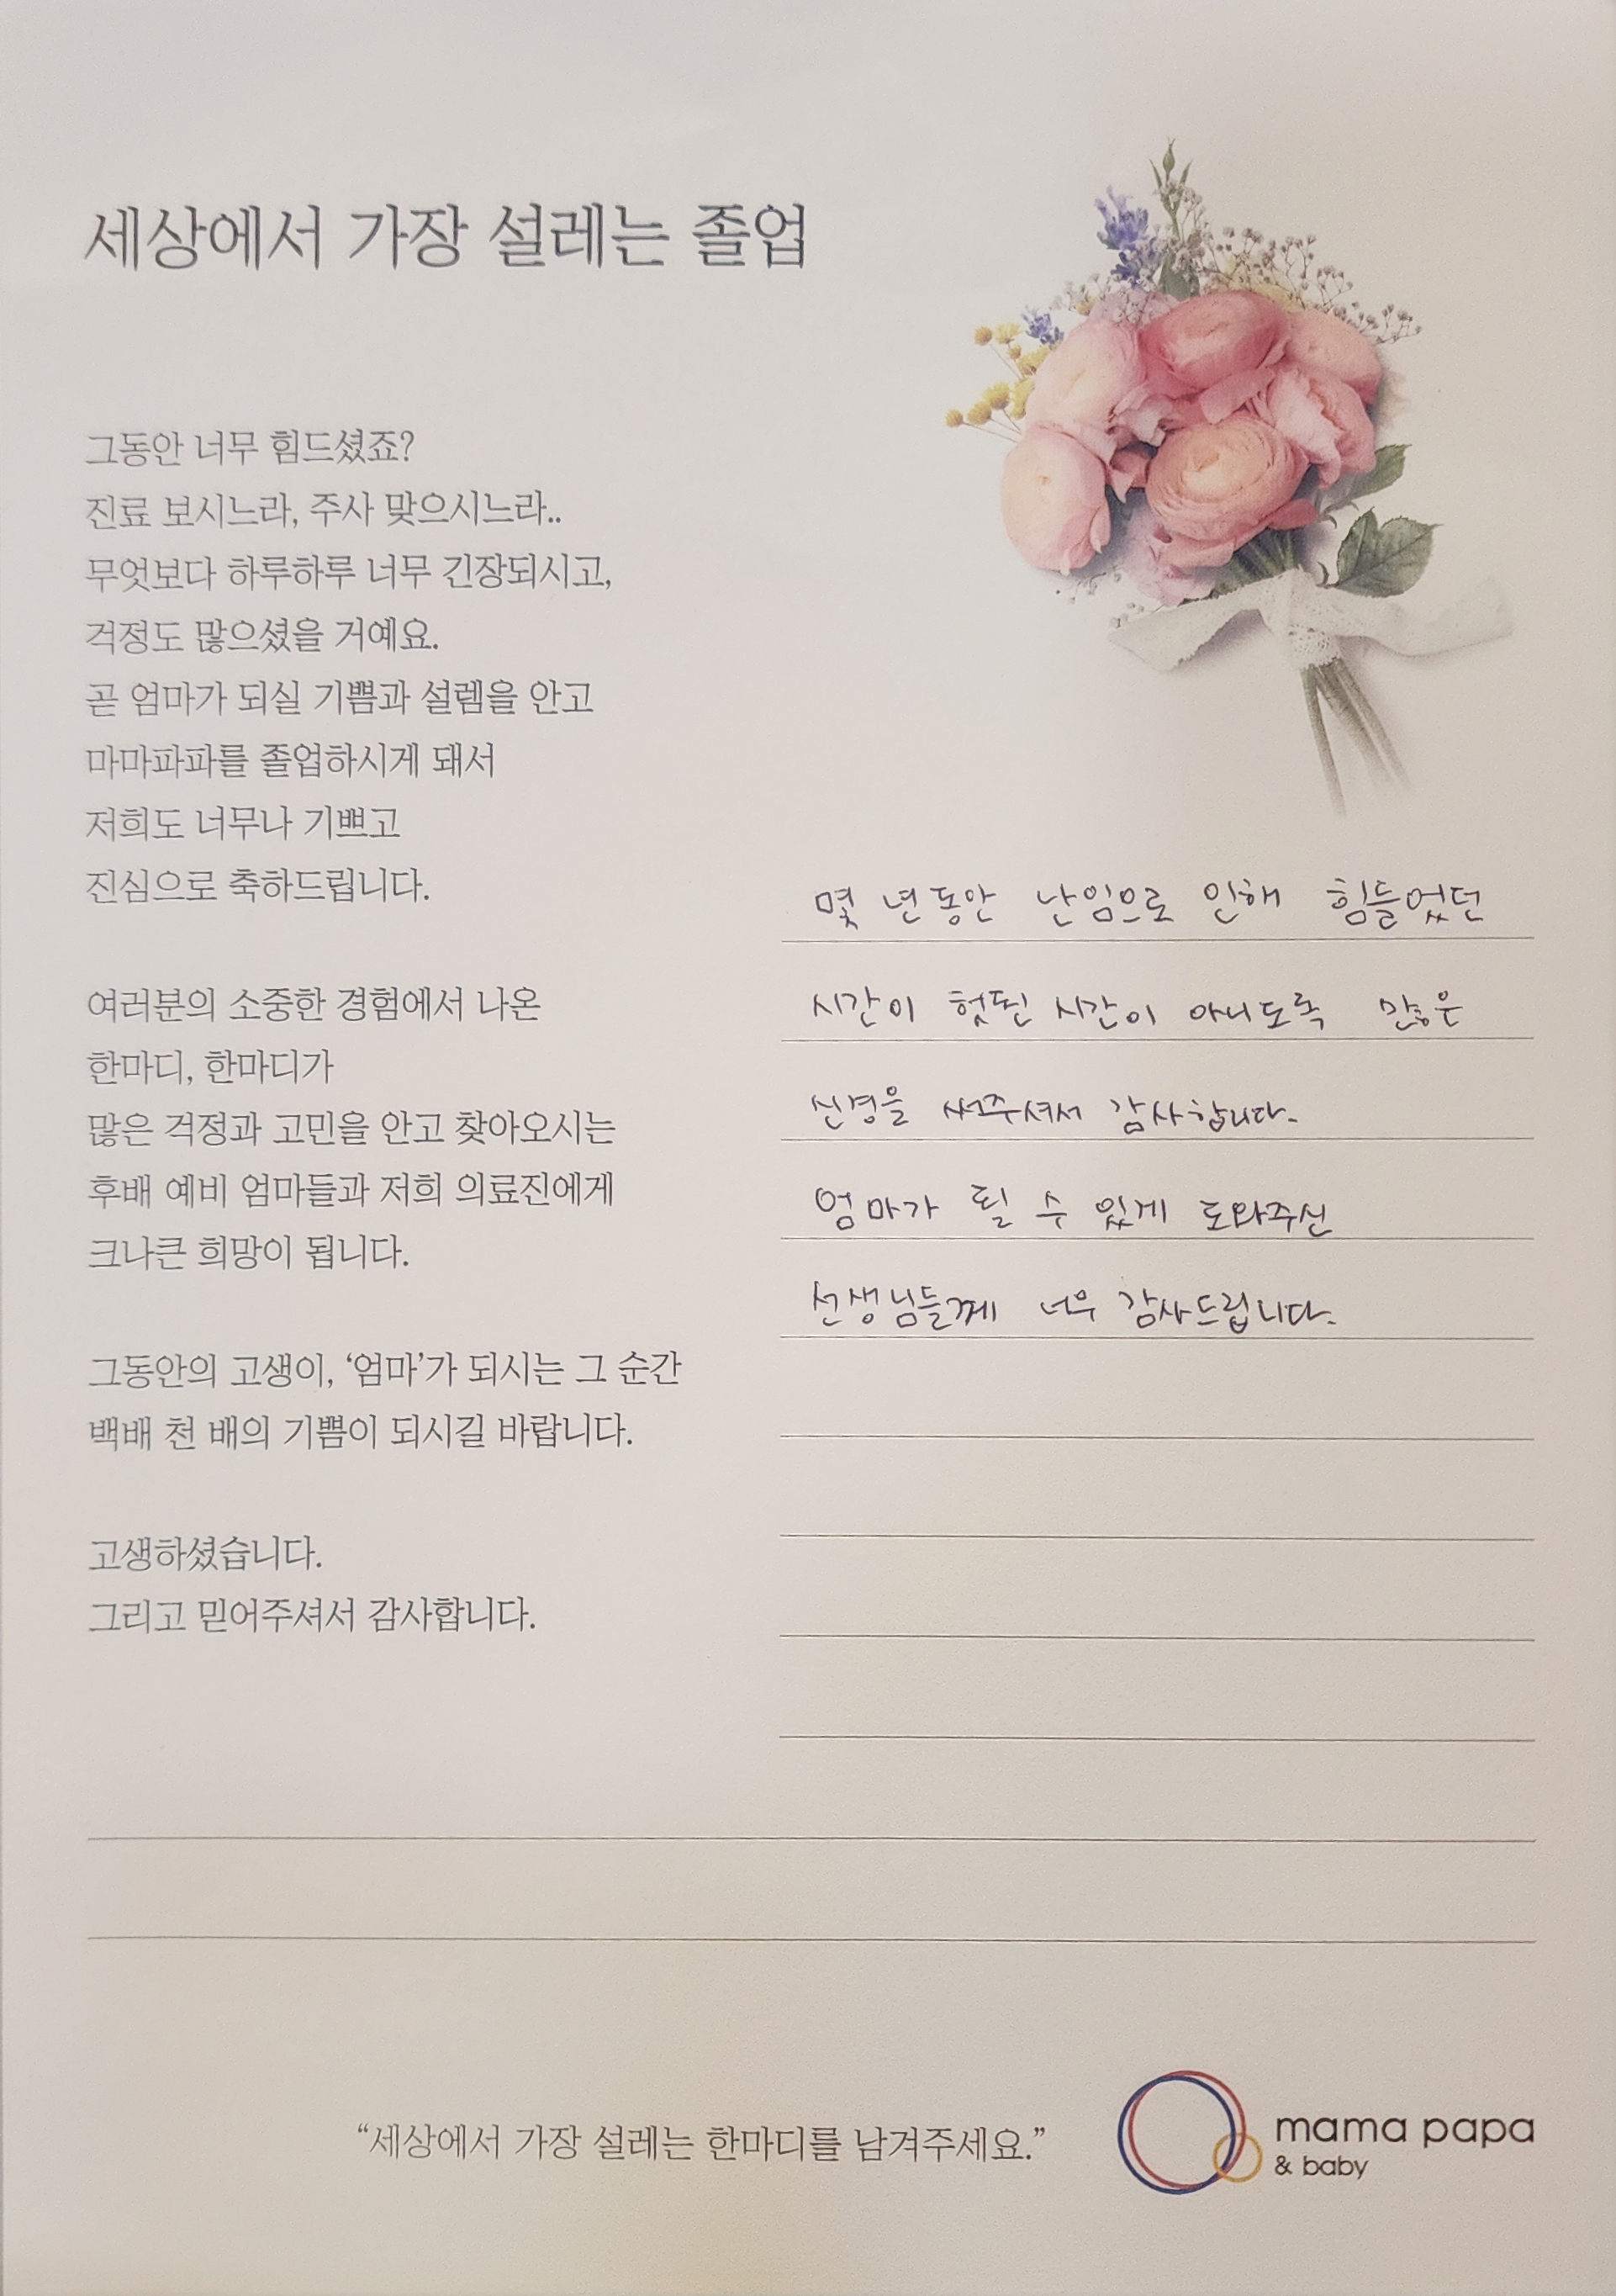 세상에서 가장 설레는 졸업
그동안 너무 힘드셨죠?
진료 보시느라, 주사 맞으시느라..
무엇보다 하루하루 너무 긴장되시고,
걱정도 많으셨을 거예요.
곧 엄마가 되실 기쁨과 설렘을 안고
마마파파를 졸업하시게 돼서
저희도 너무나 기쁘고
진심으로 축하드립니다.
여러분의 소중한 경험에서 나온
한마디, 한마디가
많은 걱정과 고민을 안고 찾아오시는
후배 예비 엄마들과 저희 의료진에게
크나큰 희망이 됩니다.
그동안의 고생이, ‘엄마’가 되시는 그 순간
백배 천 배의 기쁨이 되시길 바랍니다.
고생하셨습니다.
그리고 믿어주셔서 감사합니다.
몇 년동안 난임으로 인해 힘들었던
시간이 헛된 시간이 아니도록 많은
신경을 써주셔서 감사합니다.
엄마가 될 수 있게 도와주신
선생님들께 너무 감사드립니다.
“세상에서 가장 설레는 한마디를 남겨주세요.”
mama papa
& baby